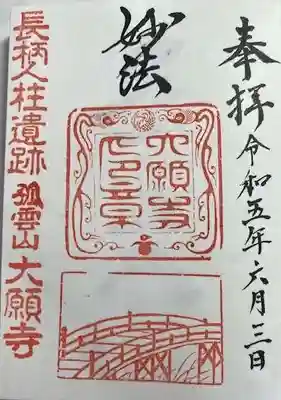 奉拝
令和五年六月三日
妙法
大願寺印章
長柄人柱遺跡 孤雲山 大願寺